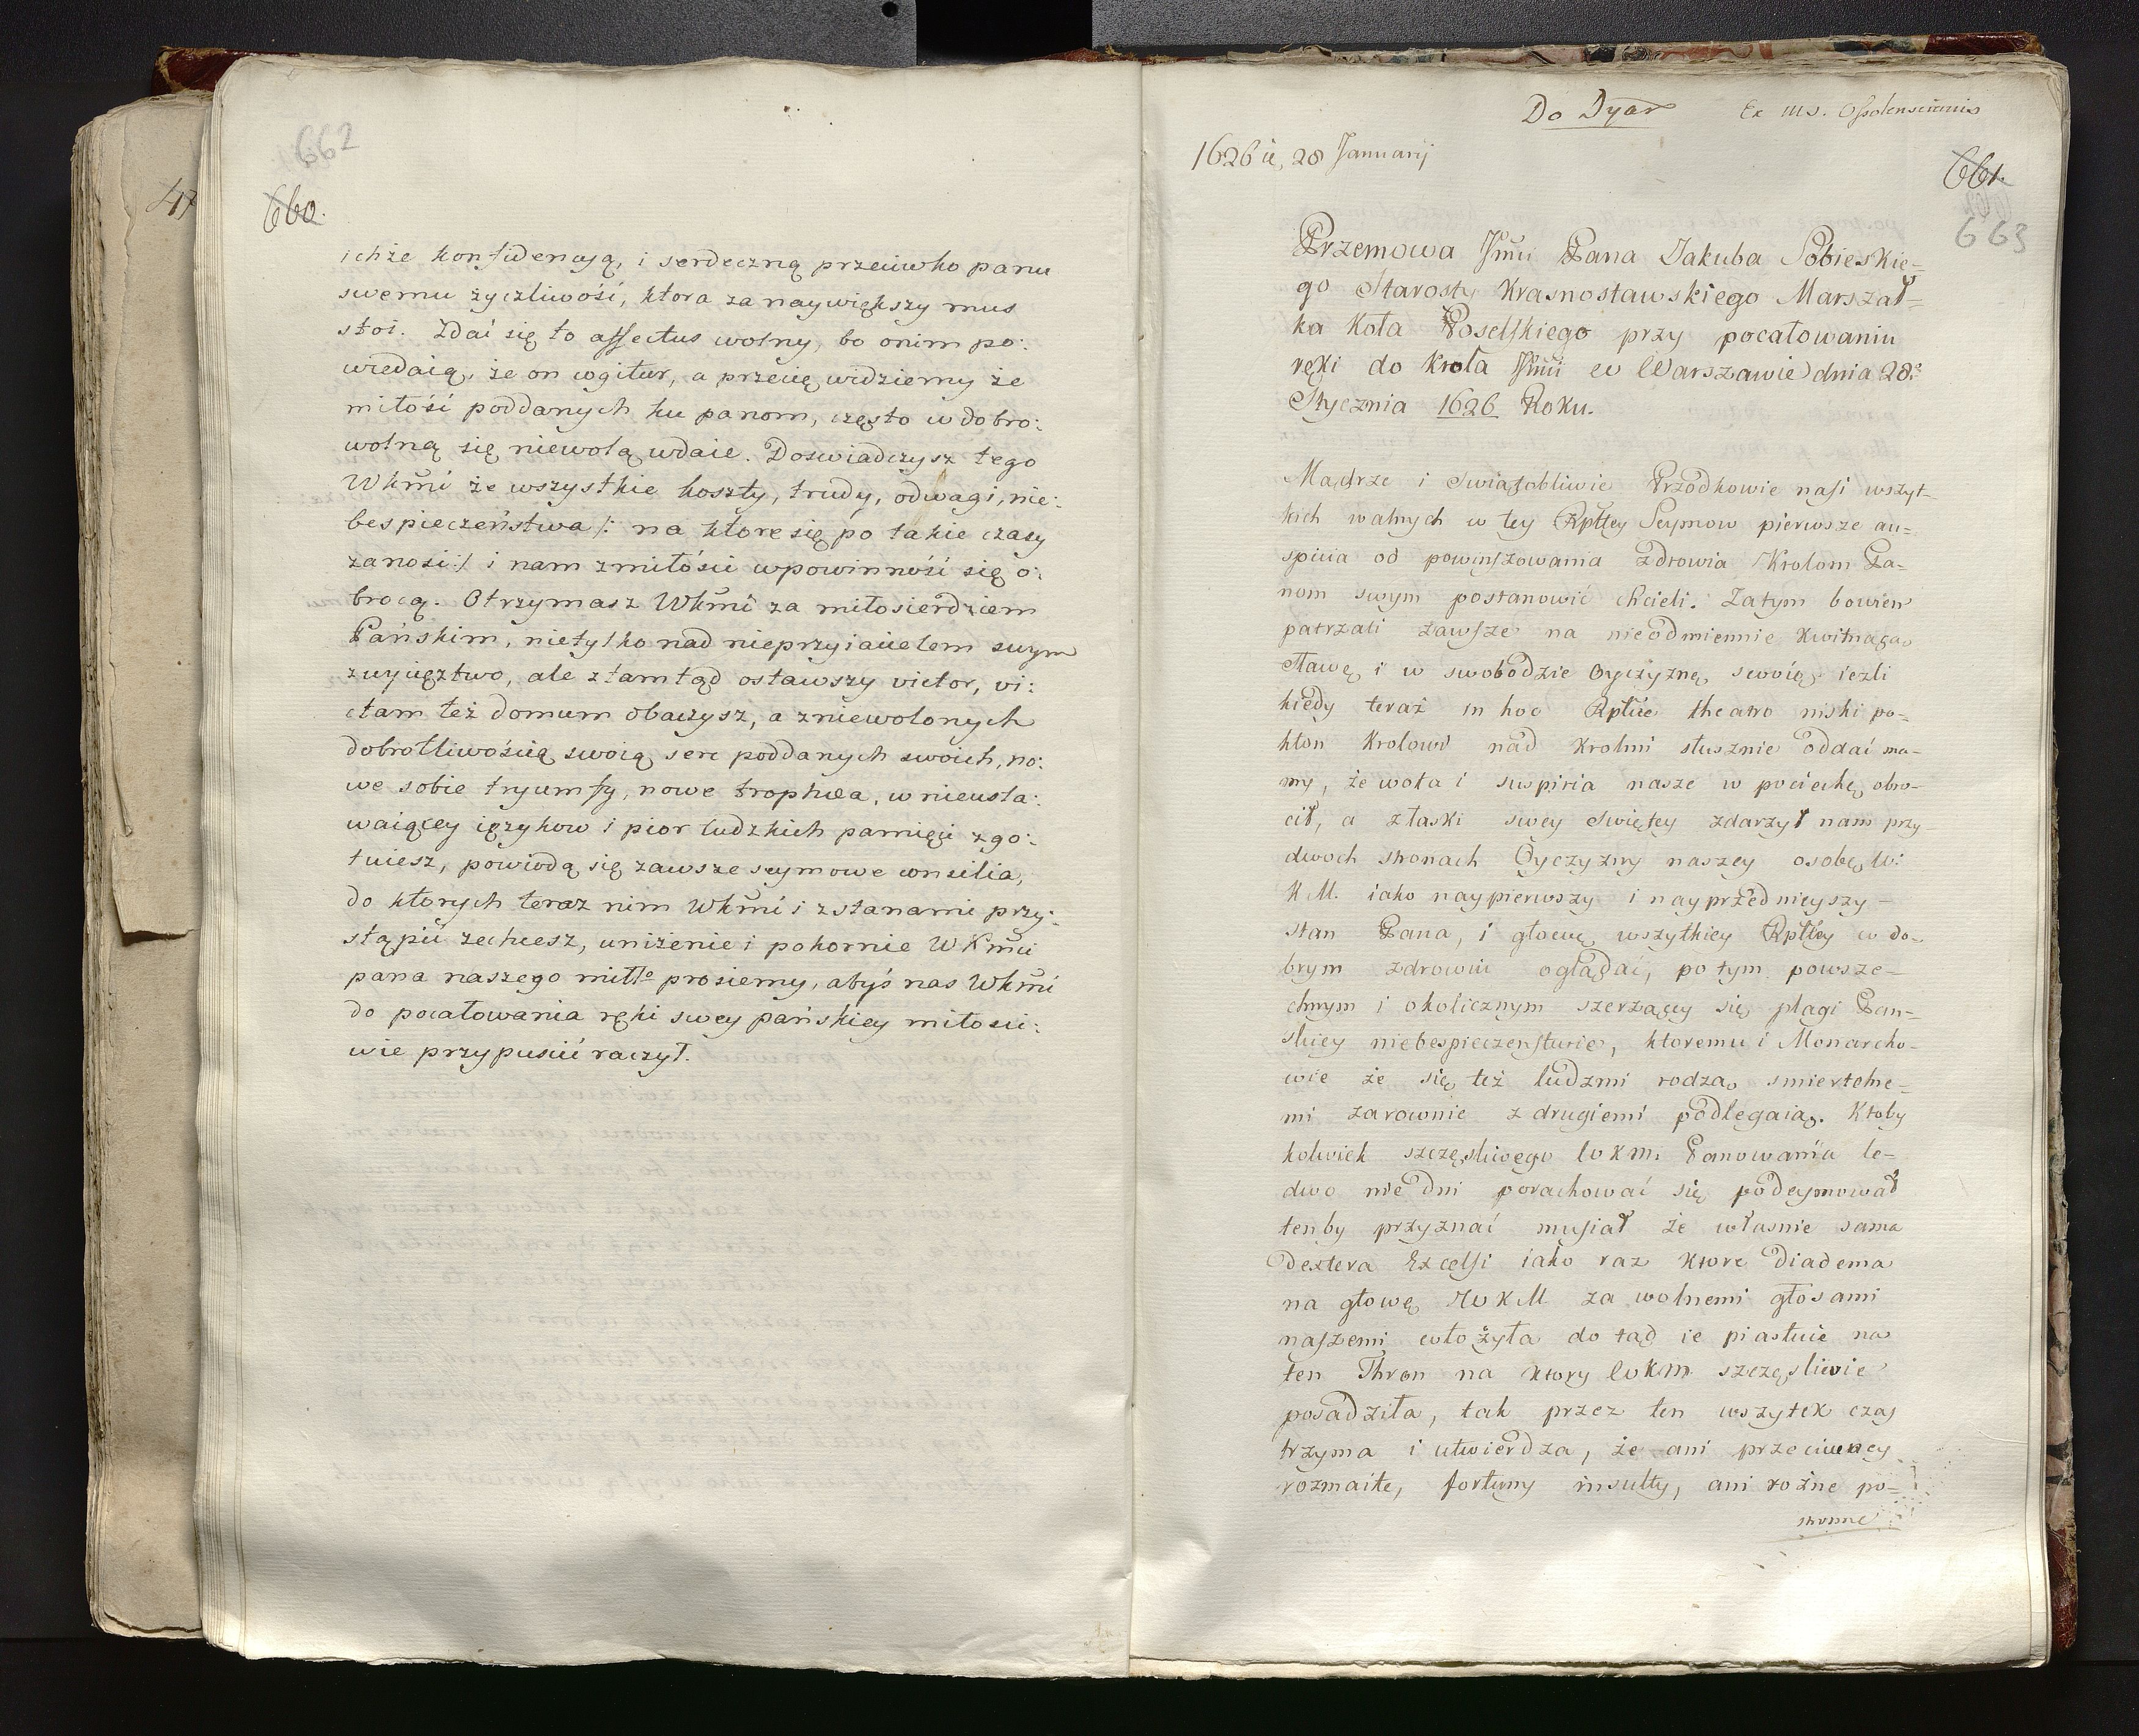 662
660.
ichże konfidencyą, i serdeczną przeciwko panu
swemu życzliwości, ktora za naywiększy mus
stoi. Zdai się to affectus wolny, bo onim po:
wiedaią, że on cogitur, a przecię widziemy że
miłości poddanych ku panom, często w dobro:
wolną się niewolą wdaie. Doswiadczysz tego
WKmć że wszystkie koszty, trudy, odwagi, nie:
bespieczeństwa /: na ktore się po takie czasy
zanosi :/ i nam zmiłości wpowinność się o:
brocą. Otrzymasz WKmć za miłosierdziem
Pańskim, nietylko nad nieprzyiacielem swym
zwycięztwo, ale ztamtąd ostawszy victor, vi:
ctam też domum obaczysz, a zniewolonych
dobrotliwością swoią serc poddanych swoich, no:
we sobie tryumfy, nowe trophaea, w nieusta:
waiącey ięzykow i pior ludzkich pamięci zgo:
tuiesz, powiodą się zawsze seymowe consilia,
do ktorych teraz nim WKmć i zstanami przy:
stąpić zechcesz, uniżenie i pokornie WKmci
pana naszego miłło prosiemy, abyś nas WKmć
do pocałowania ręki swey pańskiey miłości:
wie przypuścić raczył.
47
Do Dyar Ex MS. Ossolenscianis
1626 ii, 28 Januarij
661.
663
Przemowa Jmci Pana Jakuba Sobieskie=
go Starosty Krasnostawskiego Marszał=
ka Koła Poselskiego przy pocałowaniu
ręki do Krola Jmci w Warszawie dnia 28.
Stycznia 1626 Roku.
Mądrze i swiątobliwie Przodkowie nasi wszyt-
kich walnych w tey Rpltey Seymow pierwsze au=
spicia od powinszowania zdrowia Krolom Pa=
nom swym postanowić chcieli. Zatym bowien
patrzali zawsze na nieodmiennie kwitnącą
sławę i w swobodzie Oyczyznę swoię iezli
kiedy teraz in hoc Rptcie theatro niski po=
kłon Krolowi nad Krolmi słusznie oddai ma=
my, że wota i suspiria nasze w pociechę obro-
cił, a złaski swey swiętey zdarzył nam przy
dwoch stronach Oyczyzny naszey osobę W:
K M. iako naypierwszy i nayprzednieyszy -
stan Pana, i głowę wszytkiey Rpltey w do=
brym zdrowiu oglądać, po tym powsze=
chnym i okolicznym szerzącey się plagi Pan=
skiey niebespieczenstwie, ktoremu i Monarcho-
wie że się też ludzmi rodzą smiertelne=
mi zarownie z drugiemi podlegaią. Ktoby
kolwiek szczęsliwego WKM. Panowania le=
dwo nie dni porachować się podeymował
tenby przyznać musiał że własnie sama
Dextera Excelsi iako raz ktore diadema
na głowę WKM za wolnemi głosami
naszemi włożyła do tąd ie piastuie na
ten Thron na ktory WKM szczęsliwie
posadziła, tak przez ten wszytek czas
trzyma i utwierdza, że ani przeciwney
rozmaite, fortuny insulty, ani rożne po=
stronne